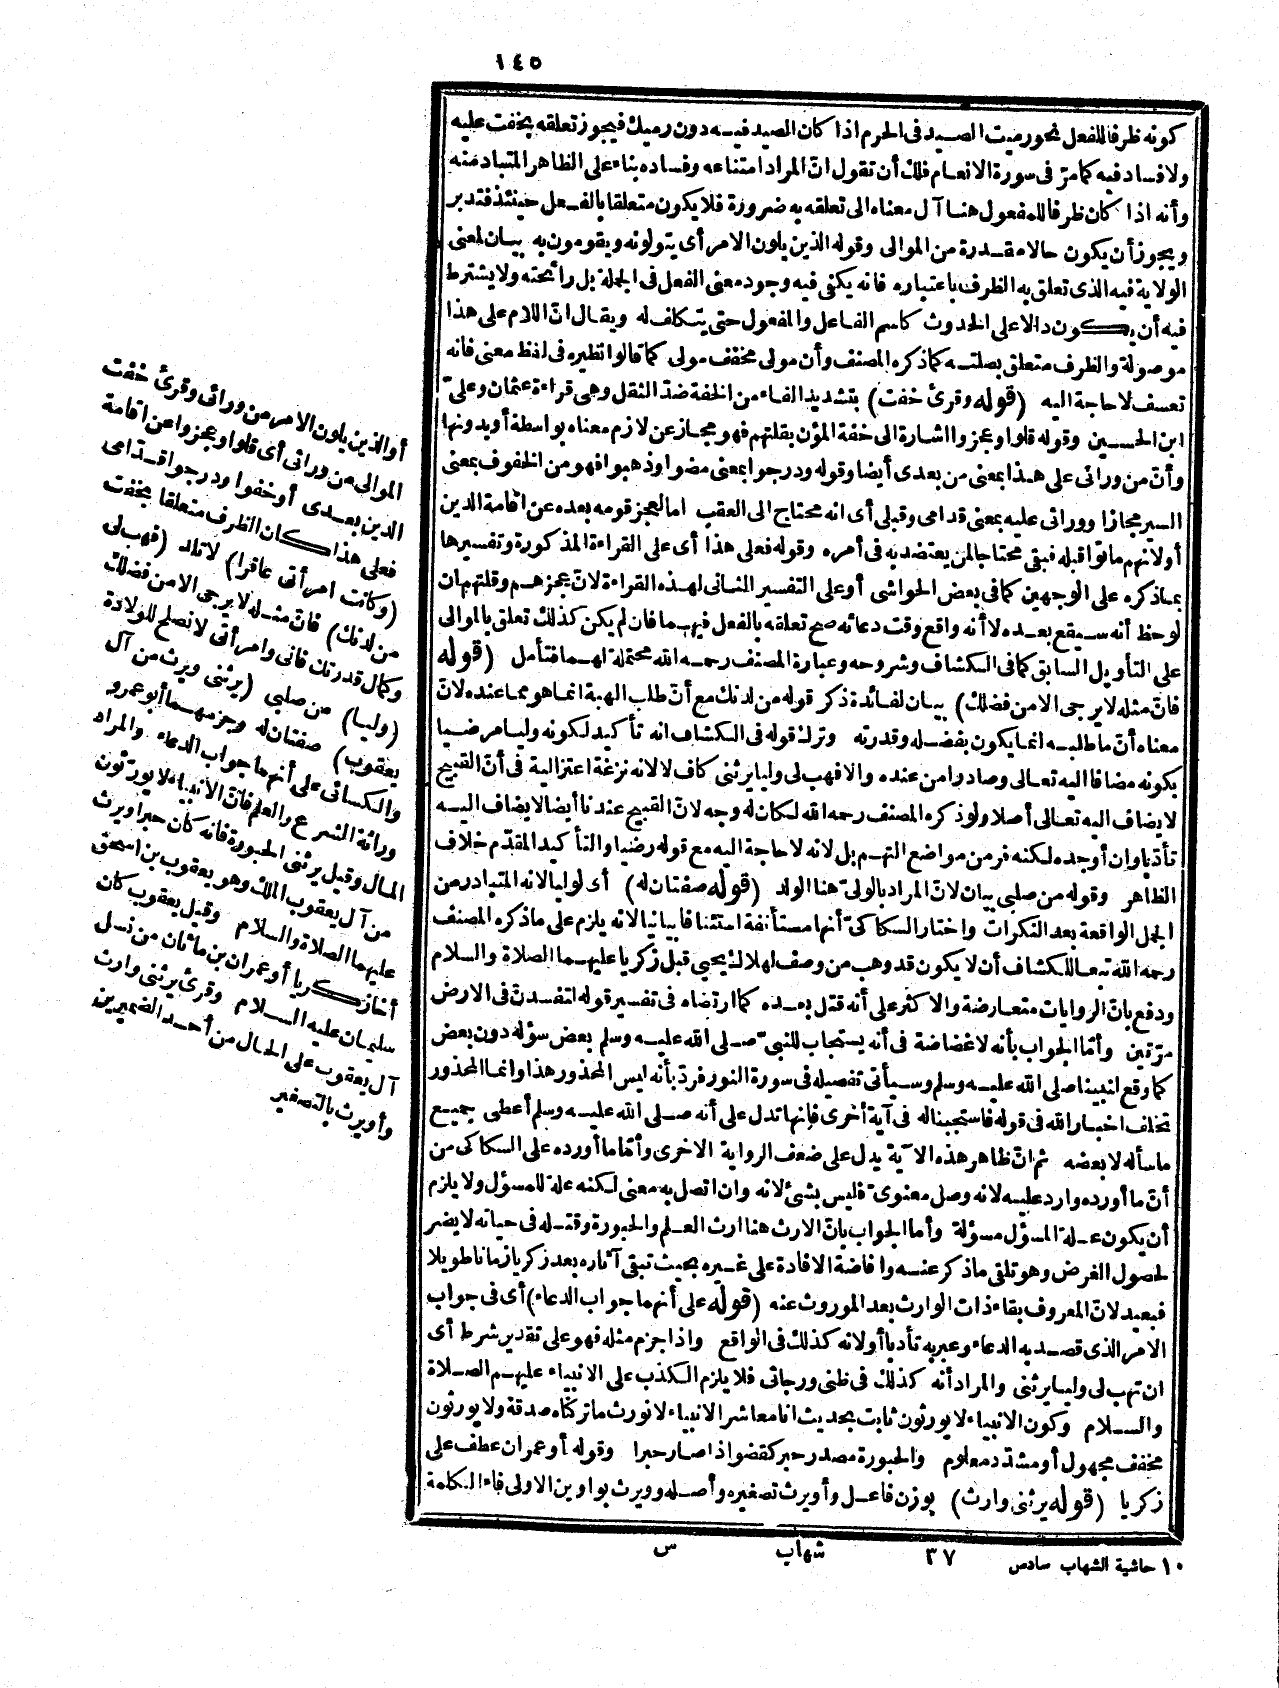 ١٤٥
كونه ظرفا للفعل نحو رميت الصيد فى الحرم اذا كان الصيد فيه دون رميك فيجوز تعلقه بخفت عليه
ولا فساد فيه كما مرّ فى سورة الانعام فلك أن تقول انّ المراد امتناعه وفساده بناء على الظاهر المتبادر منه
وأنه اذا كان ظرفا للمفعول هنا آل معناه الى تعلقه به ضرورة فلا يكون متعلقا بالفعل حينئذ فتدبر
ويجوز أن يكون حالا مقدرة من الموالى وقوله الذين يلون الامر أى يتولونه ويقومون به بيان لمعنى
الولاية فيه الذى تعلق به الظرف باعتباره فانه يكفى فيه وجود معنى الفعل فى الجملة بل رائحته ولا يشترط
فيه أن يكون دالا على الحدوث كاسم الفاعل والمفعول حتى يتكلف له ويقال انّ اللام على هذا
موصولة والظرف متعلق بصلته كما ذكره المصنف وأن مولى مخفف مولى كما قالوا نظيره فى لفظ معنى فانه
تعسف لا حاجة اليه (قوله وقرئ خفت) بتشديد الفاء من الخفة ضدّ الثقل وهى قراءة عثمان وعلىّ
ابن الحسين وقوله قلوا وعجزوا اشارة الى خفة المؤن بقلتهم فهو مجاز عن لازم معناه بواسطة أو بدونها
وأنّ من ورائى على هذا بمعنى من بعدى أيضا وقوله ودرجوا بمعنى مضوا وذهبوا فهو من الخفوف بمعنى
السير مجازا وورائى عليه بمعنى قدامى وقبلى أى انه محتاج الى العقب اما لعجز قومه بعده عن اقامة الدين
أو لانهم ماتوا قبله فبقى محتاجا لمن يعتضد به فى أمره وقوله فعلى هذا أى على القراءة المذكورة وتفسيرها
بما ذكره على الوجهين كما فى بعض الحواشى أو على التفسير الثانى لهذه القراءة لانّ عجزهم وقلتهم ان
لوحظ أنه سيقع بعده لا أنه واقع وقت دعائه صح تعلقه بالفعل فيهما فان لم يكن كذلك تعلق بالموالى
على التأويل السابق كما فى الكشاف وشروحه وعبارة المصنف رحمه الله محتملة لهما فتأمل (قوله
فانّ مثله لا يرجى الا من فضلك) بيان لفائدة ذكر قوله من لدنك مع أنّ طلب الهبة انما هو مما عنده لانّ
معناه أنّ ما طلبه انما يكون بفضله وقدرته وترك قوله فى الكشاف انه تأكيد لكونه وليا مرضيا
بكونه مضافا اليه تعالى وصادرا من عنده والا فهب لى وليا يرثنى كاف لا لانه نزغة اعتزالية فى أنّ القبيح
لا يضاف اليه تعالى أصلا ولو ذكره المصنف رحمه الله لكان له وجه لانّ القبيح عندنا أيضا لا يضاف اليه
تأدّبا وان أوجده لكنه فر من مواضع التهم بل لانه لا حاجة اليه مع قوله رضيا والتأكيد المقدّم خلاف
الظاهر وقوله من صلبى بيان لانّ المراد بالولىّ هنا الولد (قوله صفتان له) أى لوليا لانه المتبادر من
الجمل الواقعة بعد النكرات واختار السكاكىّ أنها مستأنفة استئنافا بيانيا لانه يلزم على ما ذكره المصنف
رحمه الله تبعا للكشاف أن لا يكون قد وهب من وصف لهلاك يحيى قبل زكريا عليهما الصلاة والسلام
ودفع بانّ الروايات متعارضة والاكثر على أنه قتل بعده كما ارتضاه فى تفسير قوله لتفسدنّ فى الارض
مرّتين وأمّا الجواب بأنه لا غضاضة فى أنه يستجاب للنبىّ صلى الله عليه وسلم بعض سؤله دون بعض
كما وقع لنبينا صلى الله عليه وسلم وسيأتى تفصيله فى سورة النور فردّ بأنه ليس المحذور هذا وانما المحذور
تخلف اخبار الله فى قوله فاستجبنا له فى آية أخرى فانها تدل على أنه صلى الله عليه وسلم أعطى جميع
ما سأله لا بعضه ثم انّ ظاهر هذه الآية يدل على ضعف الرواية الاخرى وأمّا ما أورده على السكاكى من
أنّ ما أورده وارد عليه لانه وصل معنوىّ فليس بشئ لانه وان اتصل به معنى لكنه علة للمسؤل ولا يلزم
أن يكون علة المسؤل مسؤلة وأما الجواب بانّ الارث هنا ارث العلم والحبورة وقتله فى حياته لا يضر
لحصول الغرض وهو تلقى ما ذكر عنه وافاضة الافادة على غيره بحيث تبقى آثاره بعد زكريا زمانا طويلا
فبعيد لانّ المعروف بقاء ذات الوارث بعد الموروث عنه (قوله على أنهما جواب الدعاء) أى فى جواب
الامر الذى قصد به الدعاء وعبر به تأدبا أو لانه كذلك فى الواقع واذا جزم مثله فهو على تقدير شرط أى
ان تهب لى وليا يرثنى والمراد أنه كذلك فى ظنى ورجائى فلا يلزم الكذب على الانبياء عليهم الصلاة
والسلام وكون الانبياء لا يورثون ثابت بحديث انا معاشر الانبياء لا نورث ما تركناه صدقة ولا يورثون
مخفف مجهول أو مشدّد معلوم والحبورة مصدر حبر كقضو اذا صار حبرا وقوله أو عمران عطف على
زكريا (قوله يرثنى وارث) بوزن فاعل وأويرث تصغيره وأصله وويرث بواوين الاولى فاء الكلمة
أو الذين يلون الامر من ورائى وقرئ خفت
الموالى من ورائى أى قلوا وعجزوا عن اقامة
الدين بعدى أو خفوا ودرجوا قدامى
فعلى هذا كان الظرف متعلقا بخفت
(وكانت امرأتى عاقرا) لا تلد (فهب لى
من لدنك) فانّ مثله لا يرجى الا من فضلك
وكمال قدرتك فانى وامرأتى لا نصلح للولادة
(وليا) من صلبى (يرثنى ويرث من آل
يعقوب) صفتان له وجزمهما أبو عمرو
والكسائى على أنهما جواب الدعاء والمراد
وراثة الشرع والعلم فانّ الانبياء لا يورثون
المال وقيل يرثنى الحبورة فانه كان حبرا ويرث
من آل يعقوب الملك وهو يعقوب بن اسحق
عليهما الصلاة والسلام وقيل يعقوب كان
أخا زكريا أو عمران بن ماثان من نسل
سليمان عليه السلام وقرئ يرثنى وارث
آل يعقوب على الحال من أحد الضميرين
وأويرث بالتصغير
١٠ حاشية الشهاب سادس ٣٧ شهاب س